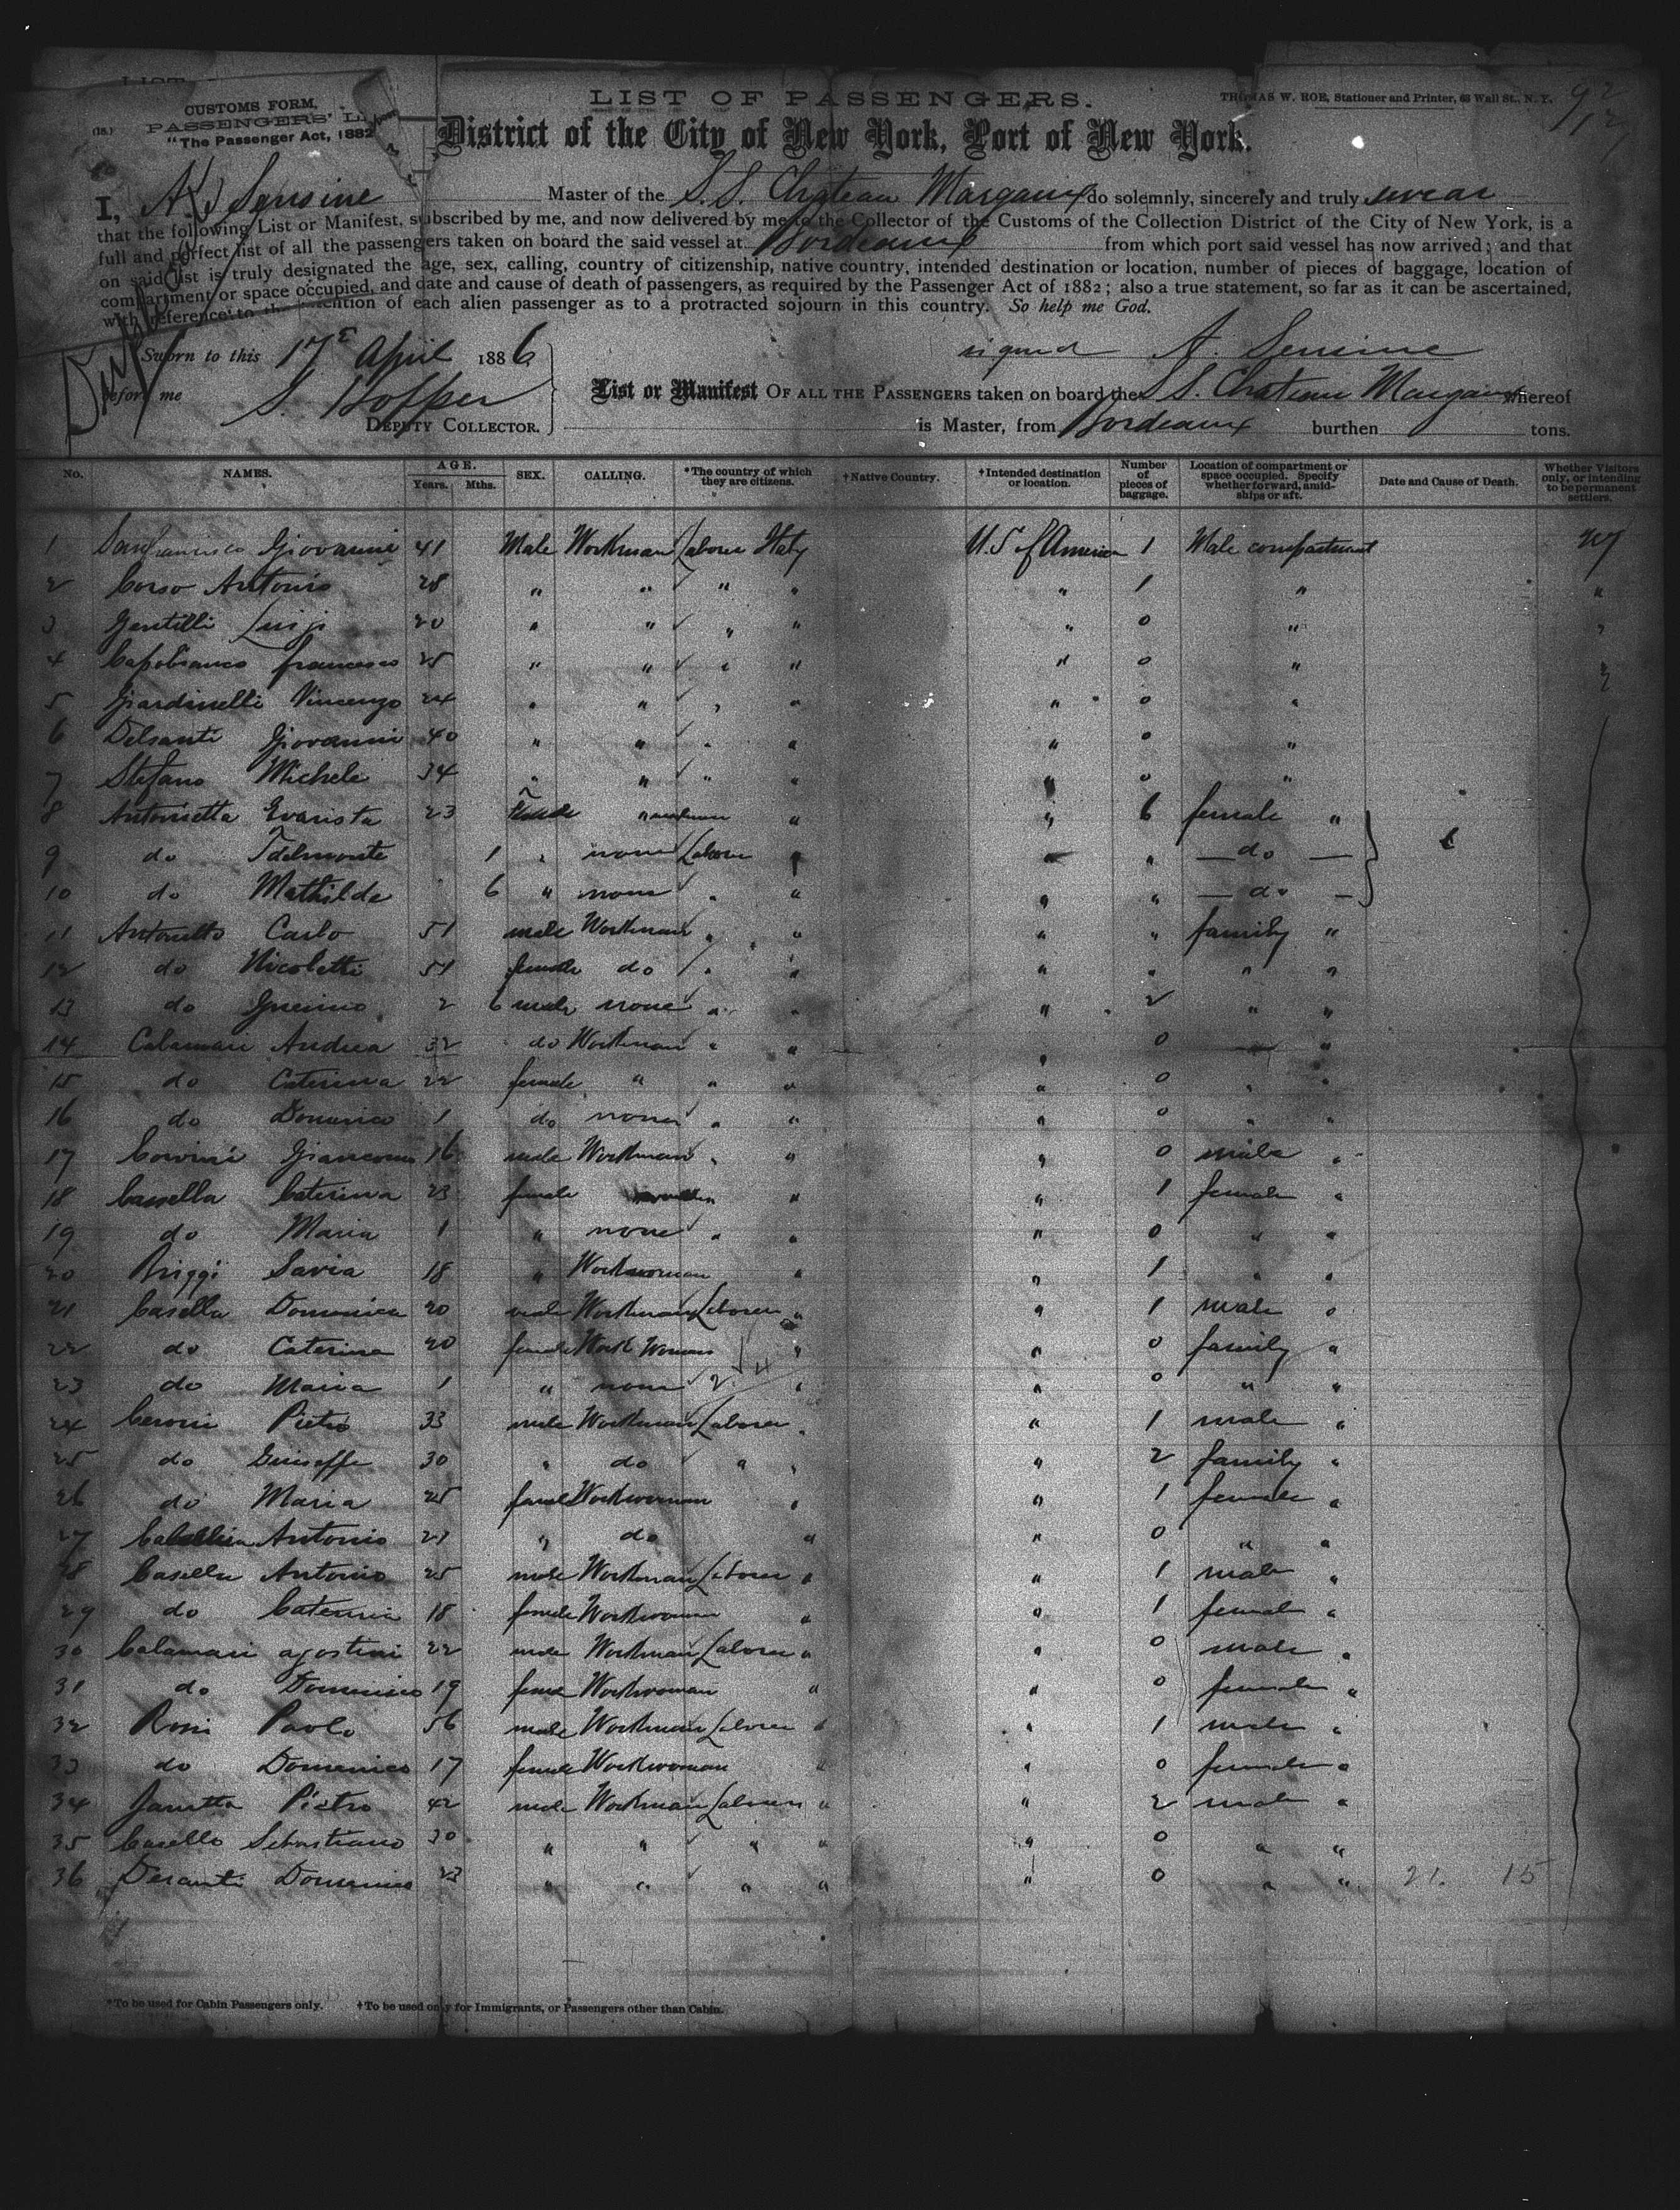 LIST OF PASSENGERS.
THOMAS W. ROE, Stationer and Printer, 63 Wall St., N. Y.
92
CUSTOMS FORM,
PASSENGERS' L
"The Passenger Act, 1882
District of the City of New York, Port of New York.
I, A. Sensine Master of the S.S. Chateau Margaux do solemnly, sincerely and truly swear
that the following List or Manifest, subscribed by me, and now delivered by me to the Collector of the Customs of the Collection District of the City of New York, is a
full and perfect list of all the passengers taken on board the said vessel at Bordeaux from which port said vessel has now arrived; and that
on said list is truly designated the age, sex, calling, country of citizenship, native country, intended destination or location, number of pieces of baggage, location of
compartment or space occupied, and date and cause of death of passengers, as required by the Passenger Act of 1882; also a true statement, so far as it can be ascertained,
with reference to the intention of each alien passenger as to a protracted sojourn in this country. So help me God.
Sworn to this 17 April 1886 signed A. Sensine
before me S. Hopper
DEPUTY COLLECTOR.
List or Manifest OF ALL THE PASSENGERS taken on board the S.S. Chateau Margaux whereof
is Master, from Bordeaux burthen tons.
No. NAMES. AGE. Years. Mths. SEX. CALLING. *The country of which they are citizens. †Native Country. †Intended destination or location. Number of pieces of baggage. Location of compartment or space occupied. Specify whether forward, amidships or aft. Date and Cause of Death. Whether Visitors only, or intending to be permanent settlers.
1 Sanfrancisco Giovanni 41 Male Workman Laborer Italy U.S of America 1 Male compartment
2 Corso Antonio 28 " " " " " 1 " "
3 Gentilli Luigi 20 " " " " " 0 " "
4 Capobianco francesco 25 " " " " " 0 "
5 Giardinelli Vincenzo 24 " " " " " 0 "
6 Delsanti Giovanni 40 " " " " " 0 "
7 Stefano Michele 34 " " " " " 0 "
8 Antonietta Evarista 23 " " 6 female "
9 do Tdelmonte 1 " none Laborer " " " do
10 do Mathilde 6 " none " " " " do
11 Antonetto Carlo 51 male Workman " " " " family "
12 do Nicoletti 51 female do " " " " " "
13 do Guerino 2 6 male none " " " 2 " "
14 Calamari Andrea 32 do Workman " " " 0 "
15 do Caterina 22 female " " " " 0 " "
16 do Domenico 1 do none " " " 0 " "
17 Corvini Giancomo 16 male Workman " " " 0 male "
18 Cassella Caterina 23 female " " 1 female "
19 do Maria 1 " none " " " 0 " "
20 Briggi Savia 18 " Workwoman " " 1 " "
21 Casella Domenica 20 male Workman Laborer " " 1 male "
22 do Caterina 20 female Work Woman " " 0 family "
23 do Maria 1 " none " " 0 " "
24 Ceroni Pietro 33 male Workman Laborer " " 1 male "
25 do Guiseffe 30 " do " " " 2 family "
26 do Maria 25 female Workwoman " " 1 female "
27 Antonio " do " " 0 " "
28 Casella Antonio 25 male Workman Laborer " " 1 male "
29 do Caterina 18 female Workwoman " " 1 female "
30 Calamari agostini 22 male Workman Laborer " " 0 male "
31 do Domenico 19 female Workwoman " " 0 female "
32 Rossi Paolo 56 male Workman Laborer " " 1 male "
33 do Domenico 17 female Workwoman " " 0 female "
34 Janetta Pietro 42 male Workman Laborer " " 2 male "
35 Casello Sebastiano 30 " " " " " 0 " "
36 Desanti Domenico 23 " " " " " 0 " " 21. 15
*To be used for Cabin Passengers only. †To be used only for Immigrants, or Passengers other than Cabin.